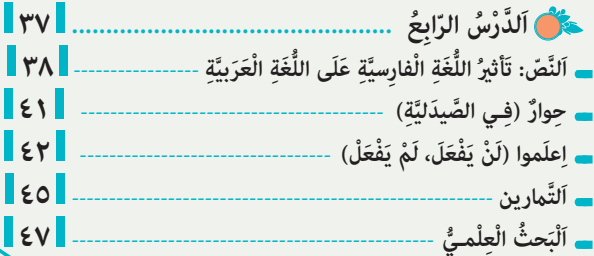 اَلدَّرْسُ الرّابِعُ ................................................ ٣٧
اَلنَّصّ: تَأثيرُ اللُّغَةِ الْفارِسيَّةِ عَلَى اللُّغَةِ الْعَرَبيَّةِ ------------------ ٣٨
حِوارٌ (فِـي الصَّيدَليَّةِ) ------------------------------------------- ٤١
اِعلَموا (لَنْ يَفْعَلَ، لَمْ يَفْعَلْ) ------------------------------------ ٤٢
اَلتَّمارين ------------------------------------------------------------ ٤٥
اَلْبَحثُ الْعِلْمـيُّ ---------------------------------------------------- ٤٧